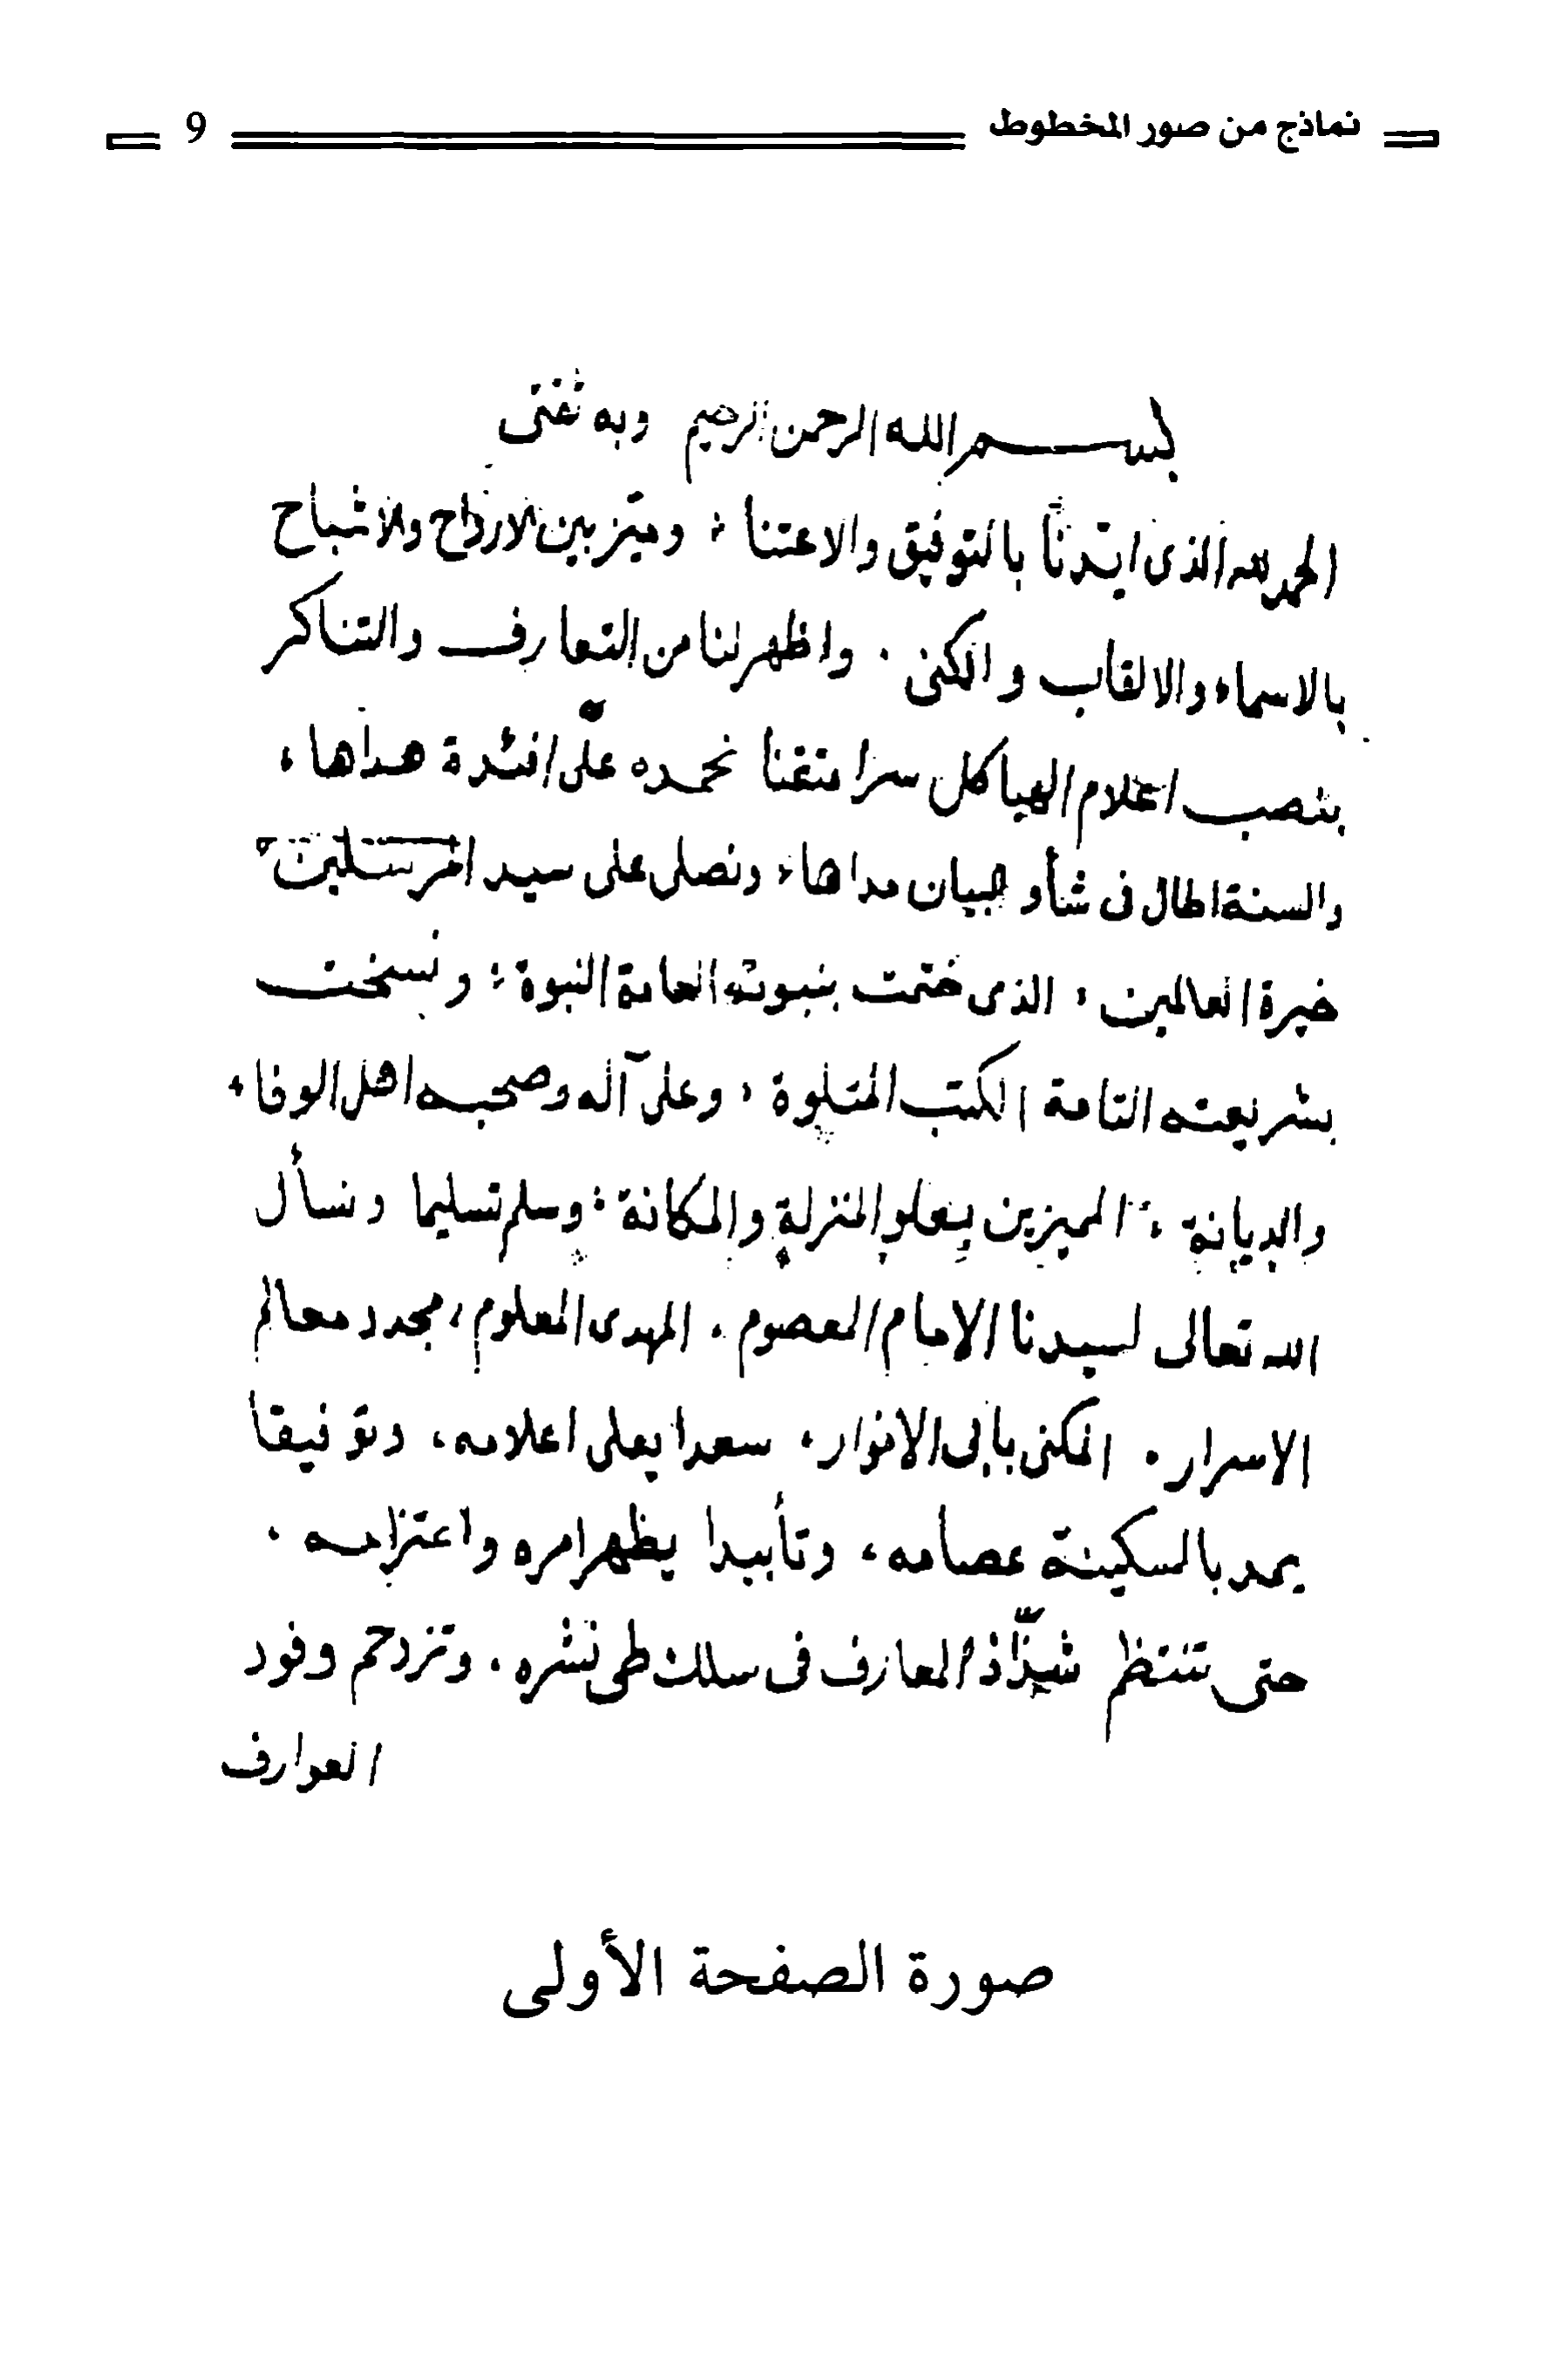 نماذج من صور المخطوط 9
بسم الله الرحمن الرحيم وبه ثقتى
الحمد لله الذى ايدنا بالتوفيق والاعتنا ؛ وميّز بين الارواح والاشباح
بالاسماء والالقاب والكنى . واظهر لنا من التعارف والتناكر
بنصب اعلام الهياكل سرا متقنا نحمده على افئدة هداها ،
والسنة اطال فى شأو البيان مداها ، ونصلى على سيد المرسلين
خيرة العالمين ، الذى ختمت بنبوته العامة النبوة ؛ ونسخت
بشريعته التامة الكتب المتلوة ، وعلى آله وصحبه اهل الوفا ،
والديانة ؛ المميزين بعلو المنزلة والمكانة ؛ وسلم تسليما ونسأل
الله تعالى لسيدنا الامام المعصوم . المهدى المعلوم ، مجدد معالم
الاسرار . المكنى بابى الانوار ، سعدا يعلى اعلامه ، وتوفيقا
يمد بالسكينة عصامه ، وتأييدا يظهر امره واعتزامه .
حتى تنتظم شذّاذ المعارف فى سلك طى نشره . وتزدحم وفود
العوارف
صورة الصفحة الأولى